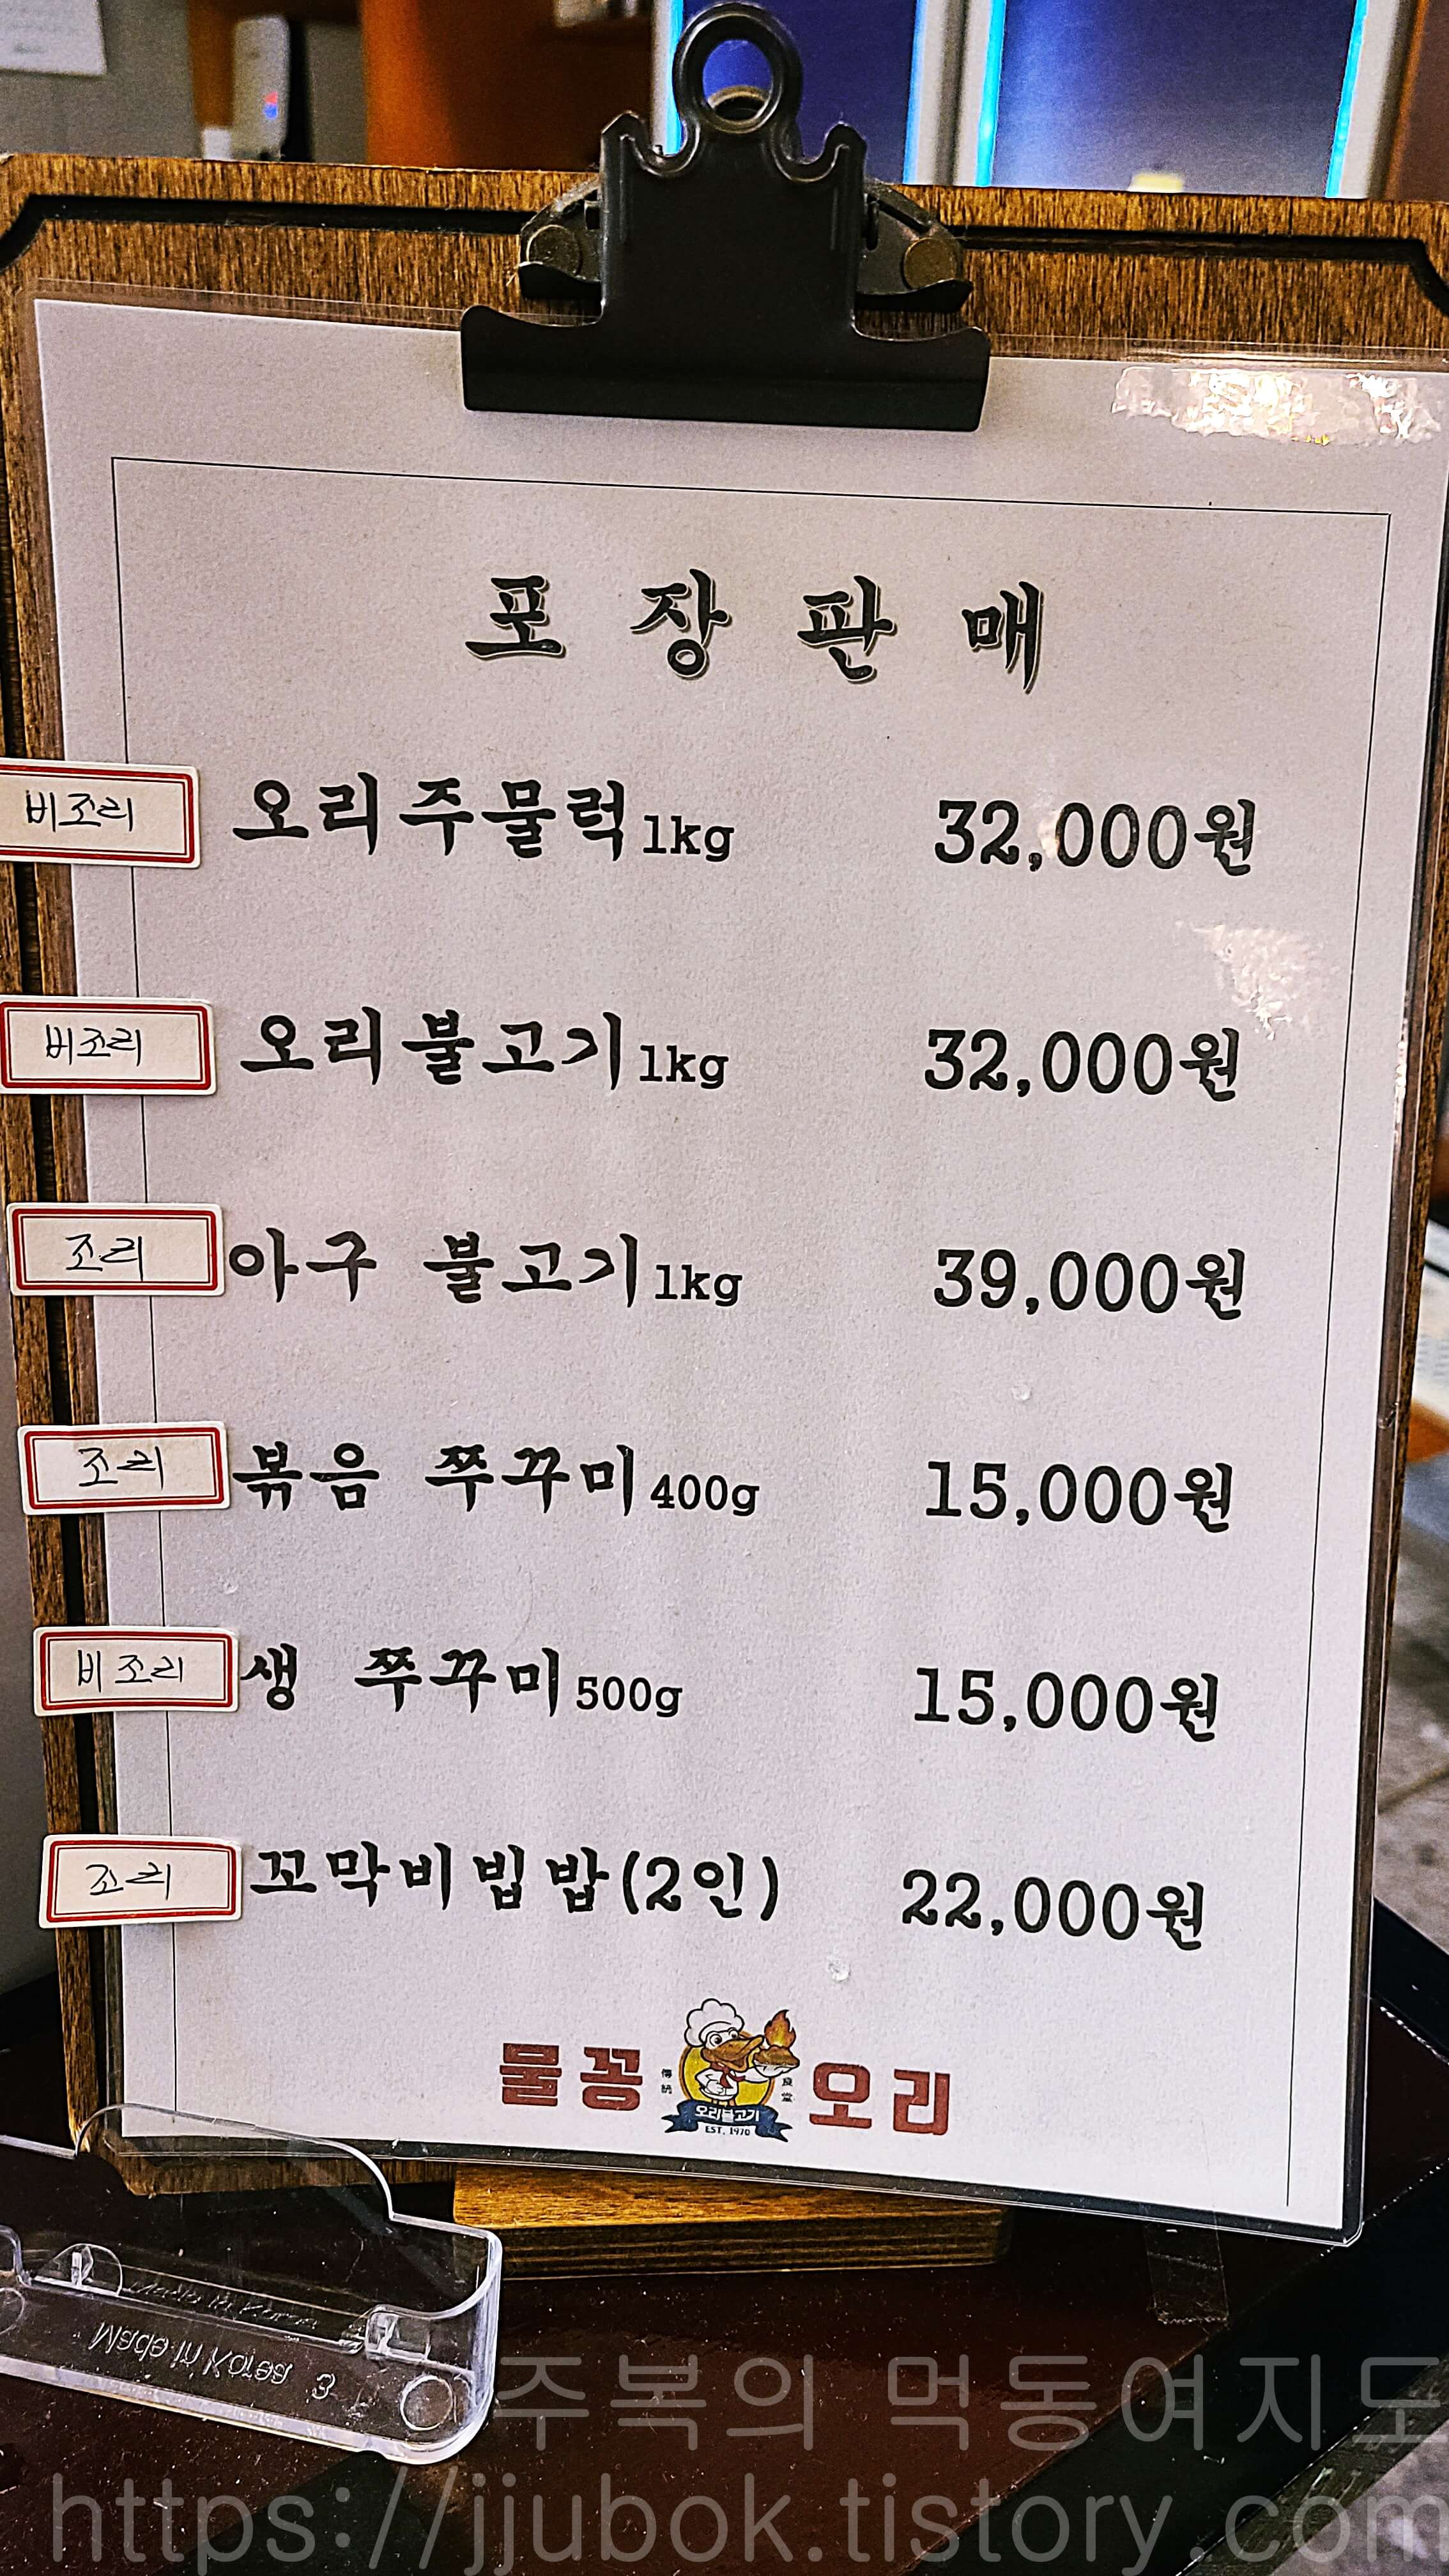 포장판매
비조리 오리주물럭1kg 32,000원
비조리 오리불고기1kg 32,000원
조리 아구 불고기1kg 39,000원
조리 볶음 쭈꾸미400g 15,000원
비조리 생 쭈꾸미500g 15,000원
조리 꼬막비빔밥(2인) 22,000원
물꽁 傳統 食堂 오리
오리불고기
EST. 1970
Made in Korea
Made in Korea 3
주복의 먹동여지도
https://jjubok.tistory.com